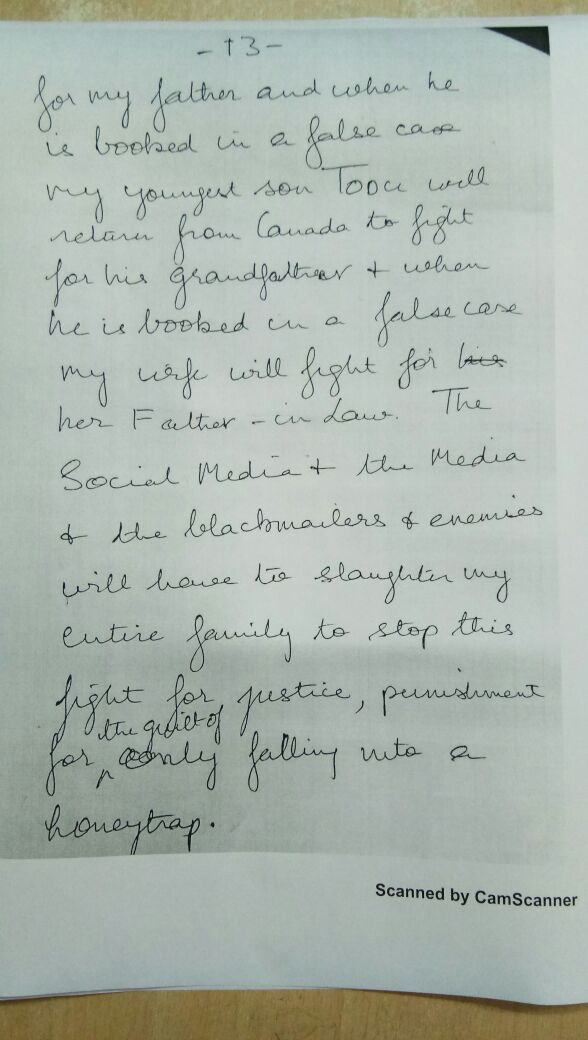 - 13 -
for my father and when he
is booked in a false case
my youngest son Tocu will
return from Canada to fight
for his grandfather + when
he is booked in a false case
my wife will fight for his
her Father-in Law. The
Social Media + the Media
& the blackmailers & enemies
will have to slaughter my
entire family to stop this
fight for justice, punishment
the guilt of
for only falling into a
honeytrap.
Scanned by CamScanner